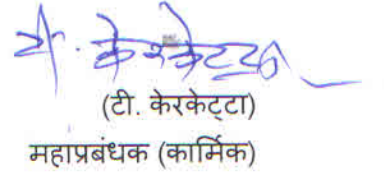 टी. केरकेट्टा
(टी. केरकेट्टा)
महाप्रबंधक (कार्मिक)